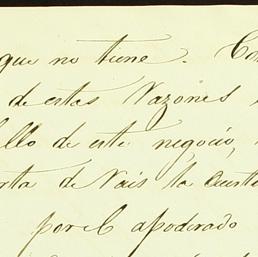 que no tiene. Con
de estas razones
ello de este negocio,
rta de Vais la Cuest
por el apoderado